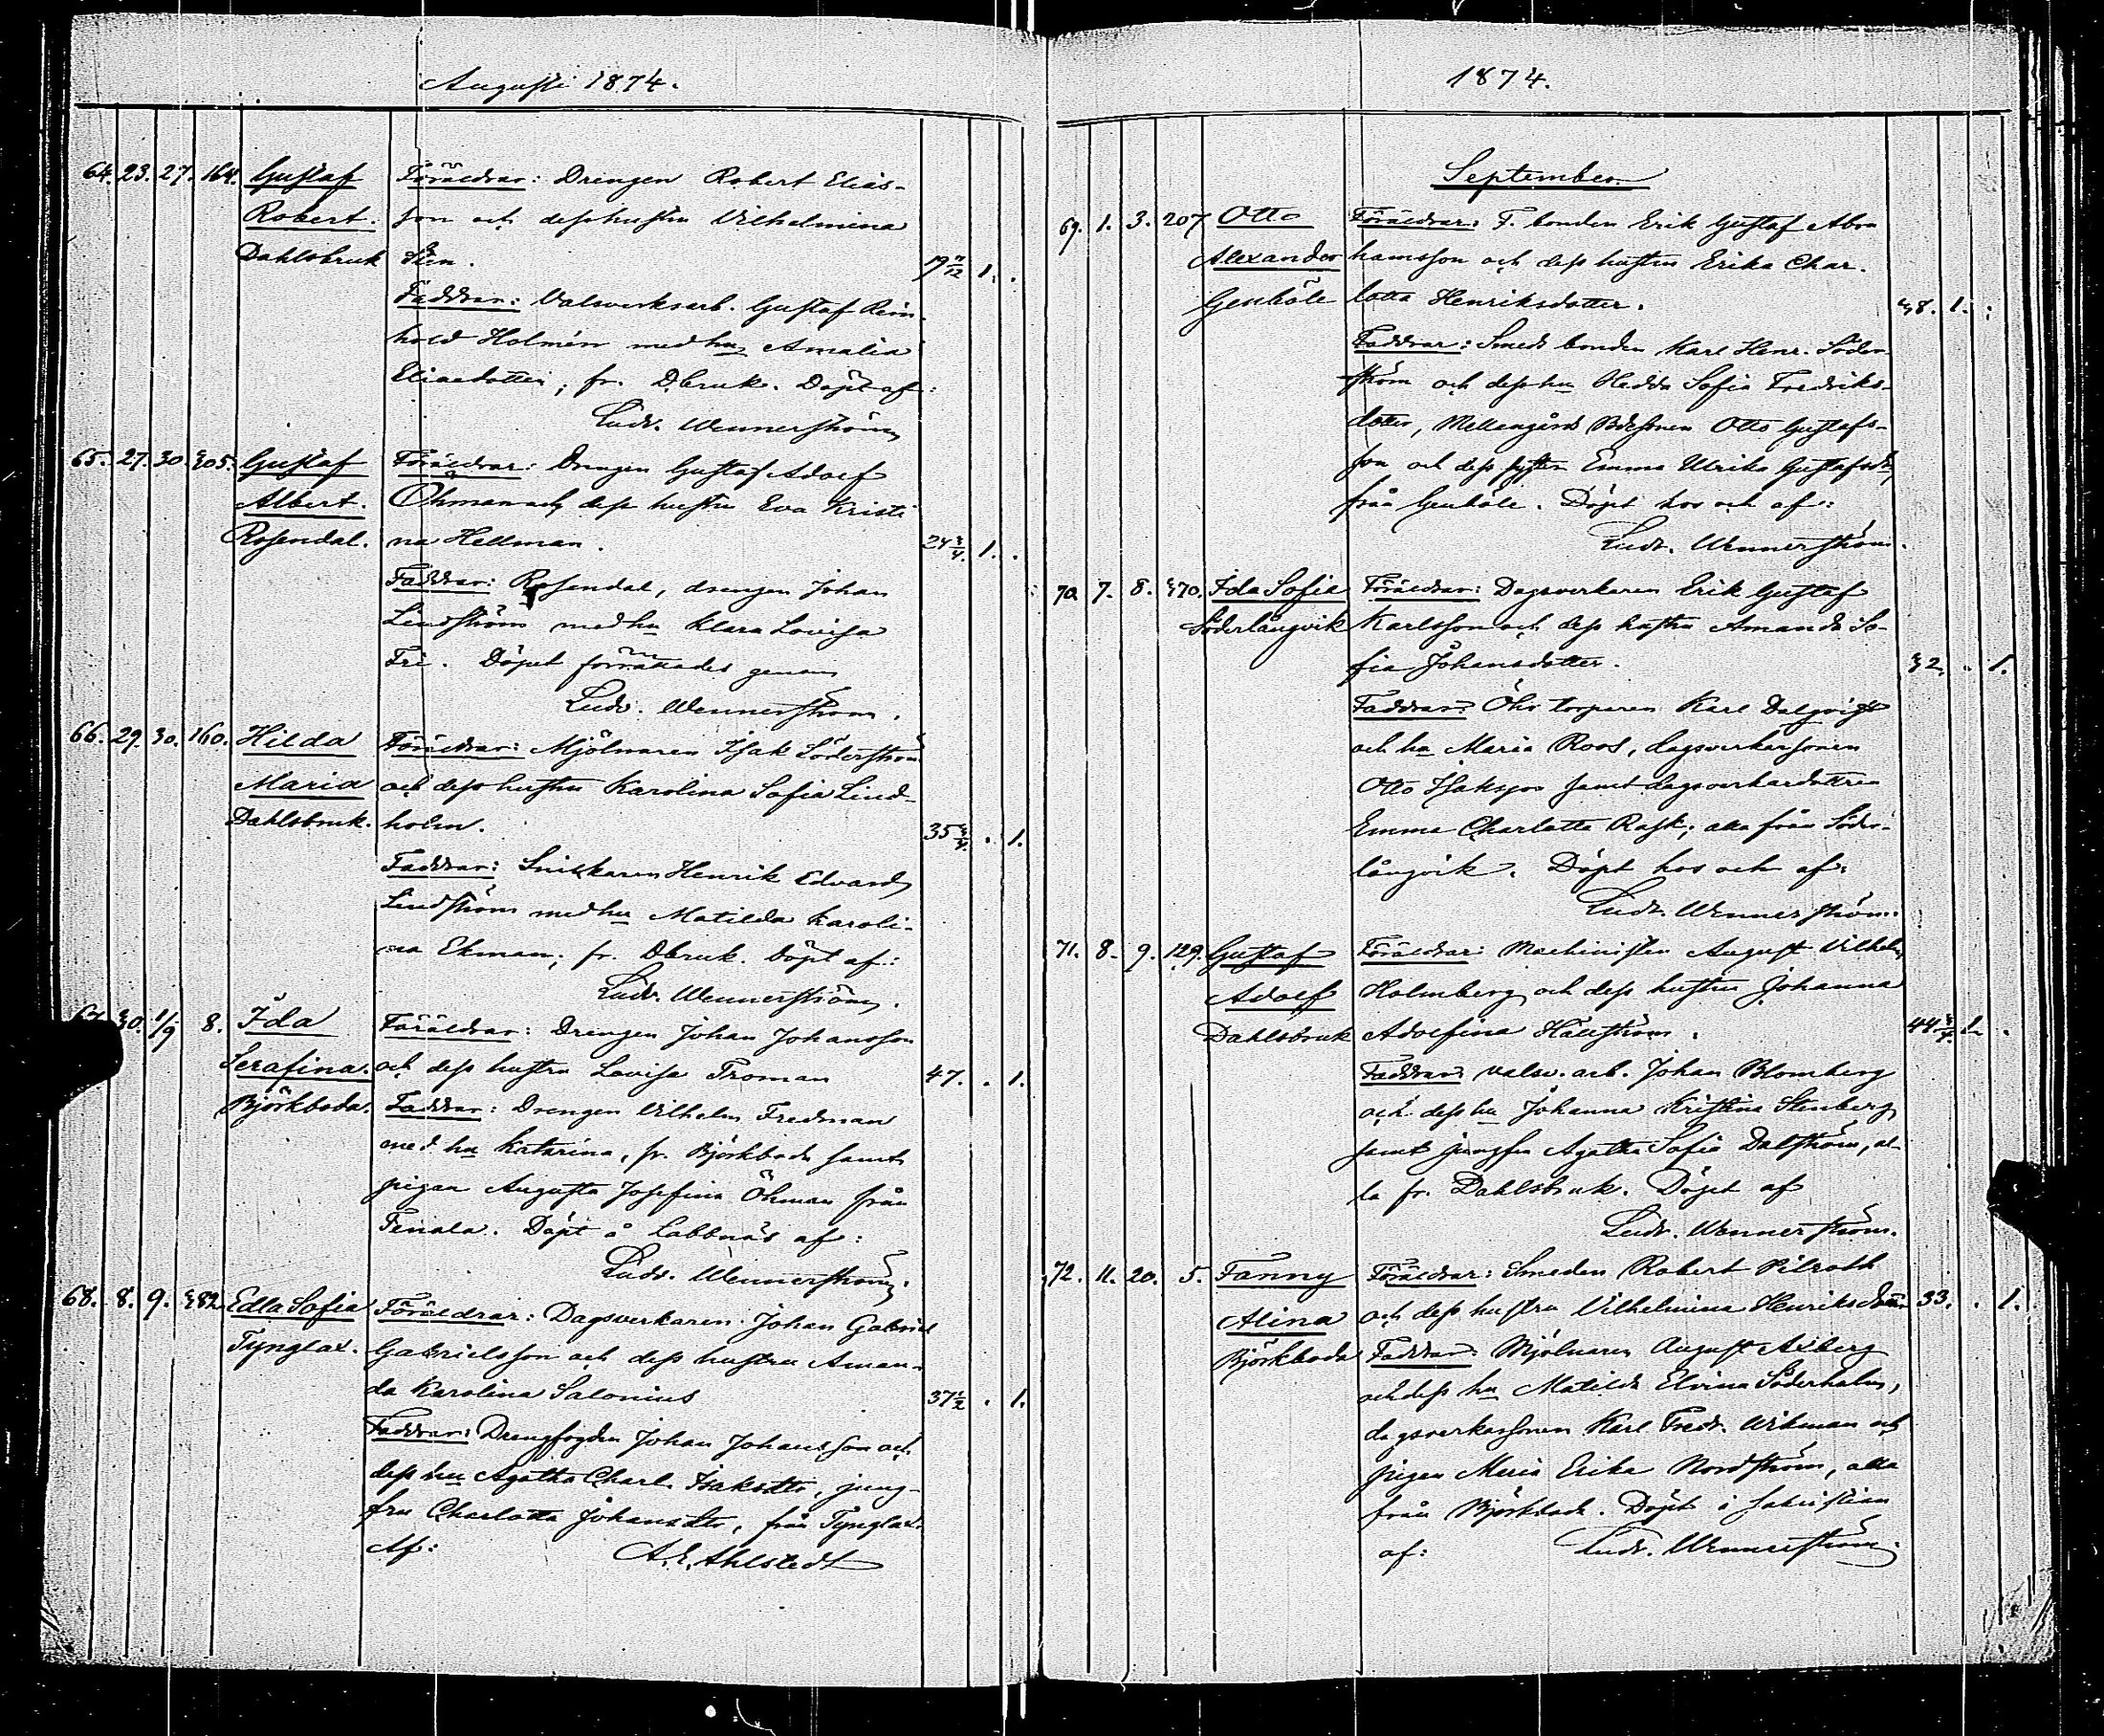 Augusti 1874.
64. 23. 27. 164. Gustaf Föräldrar: Drengen Robert Elias-
Robert. son och dess hustru Vilhelmina
Dahlsbruk 1. .
Faddrar: Valsverksarb. Gustaf Rein-
hold Holmén med hu Amalia
Eliaedotter, fr. Dbruk. Döpt af:
Ludv. Wennerström
65. 27. 30. 305. Gustaf Föräldrar: Drengen Gustaf Adolf
Albert. Öhman och dess hustru Eva Kristi
Rosendal. na Hellman. 24 3/4. 1. .
Faddrar: Rosendal, drengen Johan
Lindström med hu Klara Lovisa
Fri. Döpet förrättades genom
Ludv. Wennerström.
66. 29. 30. 160. Hilda Föräldrar: Mjölnaren Isak Söderström
Maria och dess hustru Karolina Sofia Lind-
Dahlsbruk. holm. 35 3/4. . 1.
Faddrar: Snickaren Henrik Edvard
Lindström med hu Matilda Karoli-
na Ekman; fr. Dbruk. Döpt af:
Ludv. Wennerström.
67. 30. 1/9 8. Ida Föräldrar: Drengen Johan Johansson
Serafina. och dess hustru Lovisa Froman 47. . 1.
Björkboda. Faddrar: Drengen Vilhelm Fredman
med hu Katarina, fr. Björkboda samt
pigan Augusta Josefina Öhman från
Finala. Döpt å Labbnäs af:
Ludv. Wennerström.
68. 8. 9. 382. Edla Sofia Föräldrar: Dagsverkaren Johan Gabriel
Tynglax. Gabrielsson och dess hustru Aman-
da Karolina Salonius 37 1/2 . 1.
Faddrar: Drengfogden Johan Johansson och
dess hu Agatha Charl. Isaksdtr, jung-
fru Charlotta Johansdtr, från Tynglax.
Af: A. E. Ahlstedt
1874.
September
69. 1. 3. 207 Otto Föräldrar: F. bonden Erik Gustaf Abra
Alexander hamsson och dess hustru Erika Char-
Genböle lotta Henriksdotter. 38. 1. .
Faddrar: Smeds bonden Karl Henr. Söder-
ström och dess hu Hedda Sofia Fredriks-
dotter, Mellangårds Bdesonen Otto Gustafs-
son och dess syster Emma Ulrika Gustafsdtr,
från Genböle. Döpt hos och af:
Ludv. Wennerström.
70. 7. 8. 370. Ida Sofia Föräldrar: Dagsverkaren Erik Gustaf
Söderlångvik Karlsson och dess hustru Amanda So-
fia Johansdotter. 32. . 1.
Faddrar: Öhr torparen Karl Dalqvist
och hu Maria Roos, dagsverkarsonen
Otto Isaksson samt dagsverkardottren
Emma Charlotta Rask; alla från Söder-
långvik. Döpt hos och af:
Ludv. Wennerström.
71. 8. 9. 129. Gustaf Föräldrar: Machinisten August Vilhelm
Adolf Holmberg och dess hustru Johanna
Dahlsbruk Adolfina Hällström. 44 3/4. 1. .
Faddrar: valsv. arb. Johan Blomberg
och dess hu Johanna Kristina Stenberg
samt jungfru Agatha Sofia Dalström, al-
la fr. Dahlsbruk. Döpt af
Ludv. Wennerström.
72. 11. 20. 5. Fanny Föräldrar: Smeden Robert Pilroth
Alina och dess hustru Vilhelmina Henriksdotter 33. . 1.
Björkboda Faddrar: Mjölnaren August Axberg
och dess hu Matilda Elvina Söderholm,
dagsverkarsonen Karl Fredr. Wikman och
pigan Maria Erika Nordström, alla
från Björkboda. Döpt i sakristian
af: Ludv. Wennerström.